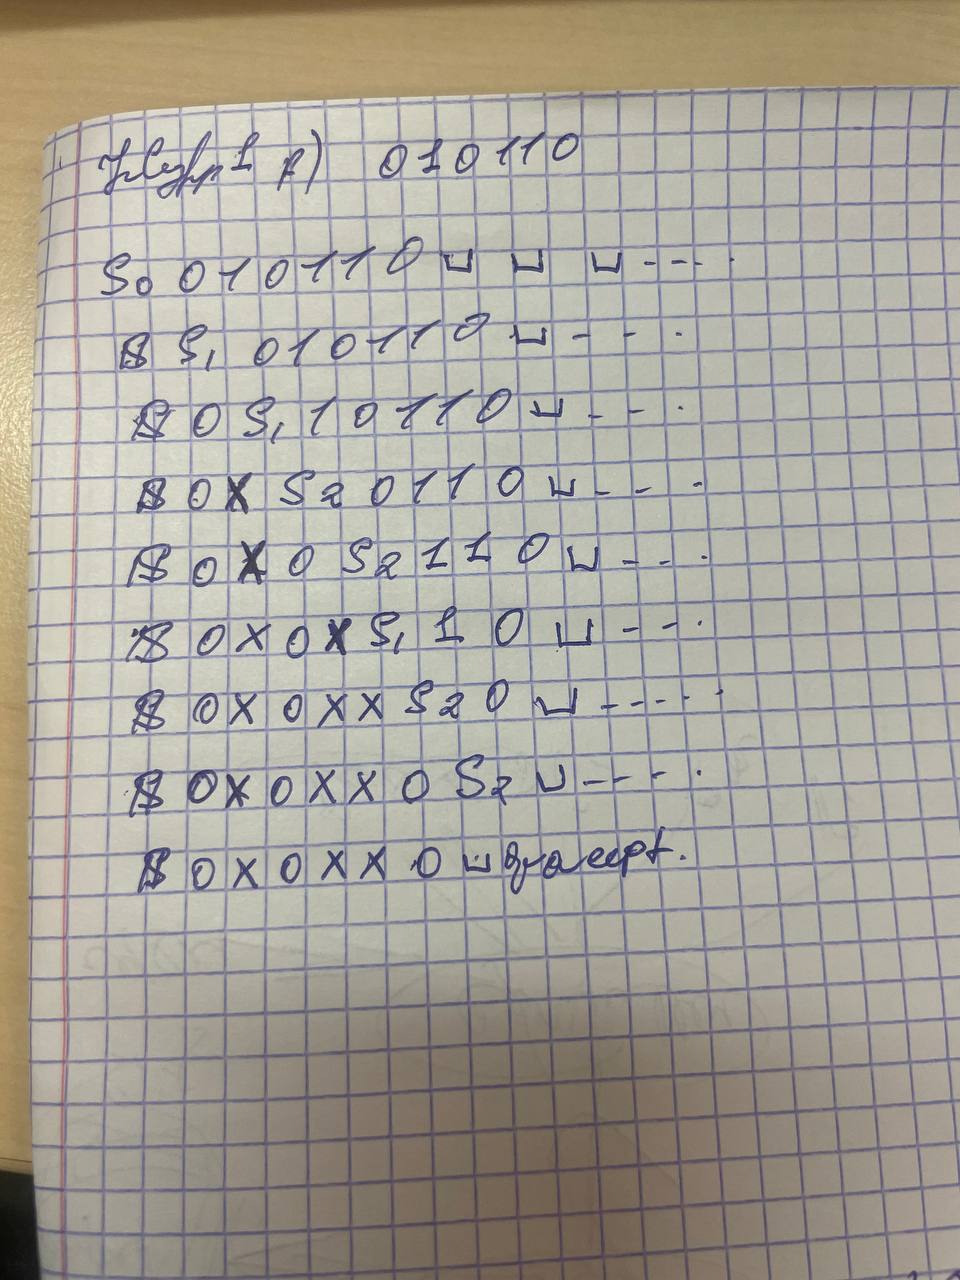 1 010110
S₀ 010110 ⊔ ⊔ ⊔ - - - .
$ S₁ 010110 ⊔ - - - .
$ 0 S₁ 10110 ⊔ - - - .
$ 0 X S₂ 0110 ⊔ - - - .
$ 0 X 0 S₂ 110 ⊔ - - - .
$ 0 X 0 X S₁ 1 0 ⊔ - - - .
$ 0 X 0 X X S₂ 0 ⊔ - - - - .
$ 0 X 0 X X 0 S₂ ⊔ - - - - .
$ 0 X 0 X X 0 ⊔ accept.